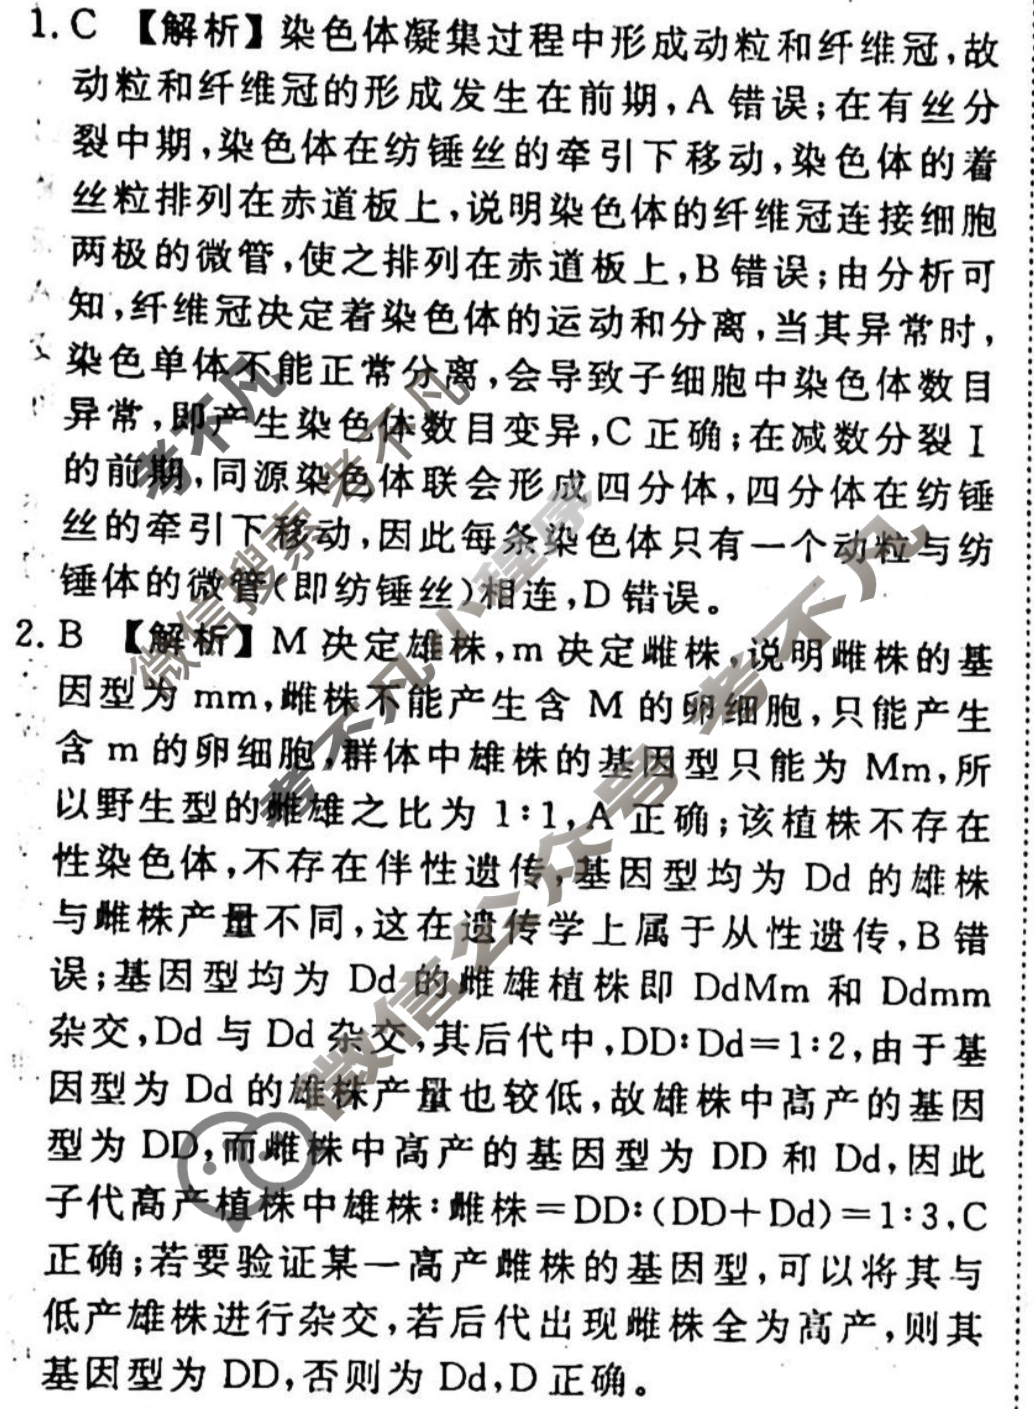 1. C 【解析】染色体凝集过程中形成动粒和纤维冠,故
动粒和纤维冠的形成发生在前期,A 错误;在有丝分
裂中期,染色体在纺锤丝的牵引下移动,染色体的着
丝粒排列在赤道板上,说明染色体的纤维冠连接细胞
两极的微管,使之排列在赤道板上,B 错误;由分析可
知,纤维冠决定着染色体的运动和分离,当其异常时,
染色单体不能正常分离,会导致子细胞中染色体数目
异常,即产生染色体数目变异,C 正确;在减数分裂 I
的前期,同源染色体联会形成四分体,四分体在纺锤
丝的牵引下移动,因此每条染色体只有一个动粒与纺
锤体的微管(即纺锤丝)相连,D 错误。
2. B 【解析】M 决定雄株,m 决定雌株,说明雌株的基
因型为 mm,雌株不能产生含 M 的卵细胞,只能产生
含 m 的卵细胞,群体中雄株的基因型只能为 Mm,所
以野生型的雌雄之比为 1∶1,A 正确;该植株不存在
性染色体,不存在伴性遗传,基因型均为 Dd 的雄株
与雌株产量不同,这在遗传学上属于从性遗传,B 错
误;基因型均为 Dd 的雌雄植株即 DdMm 和 Ddmm
杂交,Dd 与 Dd 杂交,其后代中,DD∶Dd=1∶2,由于基
因型为 Dd 的雄株产量也较低,故雄株中高产的基因
型为 DD,而雌株中高产的基因型为 DD 和 Dd,因此
子代高产植株中雄株∶雌株=DD∶(DD+Dd)=1∶3,C
正确;若要验证某一高产雌株的基因型,可以将其与
低产雄株进行杂交,若后代出现雌株全为高产,则其
基因型为 DD,否则为 Dd,D 正确。
考不凡
微信搜索 考不凡
考不凡小程序
微信公众号 考不凡